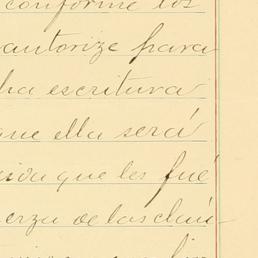 conforme los
autorize para
ha escritura
que ella será
que les fué
erza de las cláu-